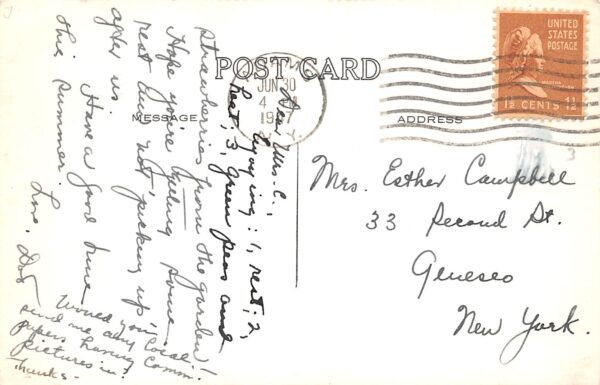 POST CARD
JUN 30
4
19
MESSAGE
ADDRESS
UNITED
STATES
POSTAGE
MARTHA
1½ CENTS 1½
3
Dear Mrs. C.,
Enjoying: 1, rest; 2,
rest; 3, Green peas and
strawberries from the garden!
Hope you're getting some
rest and not picking up
after us.
Have a good time
this summer.
Love, Dot
Would you
send me any local
papers having Comm.
pictures in?
Thanks.
Mrs. Esther Campbell
33 Second St.
Geneseo
New York.